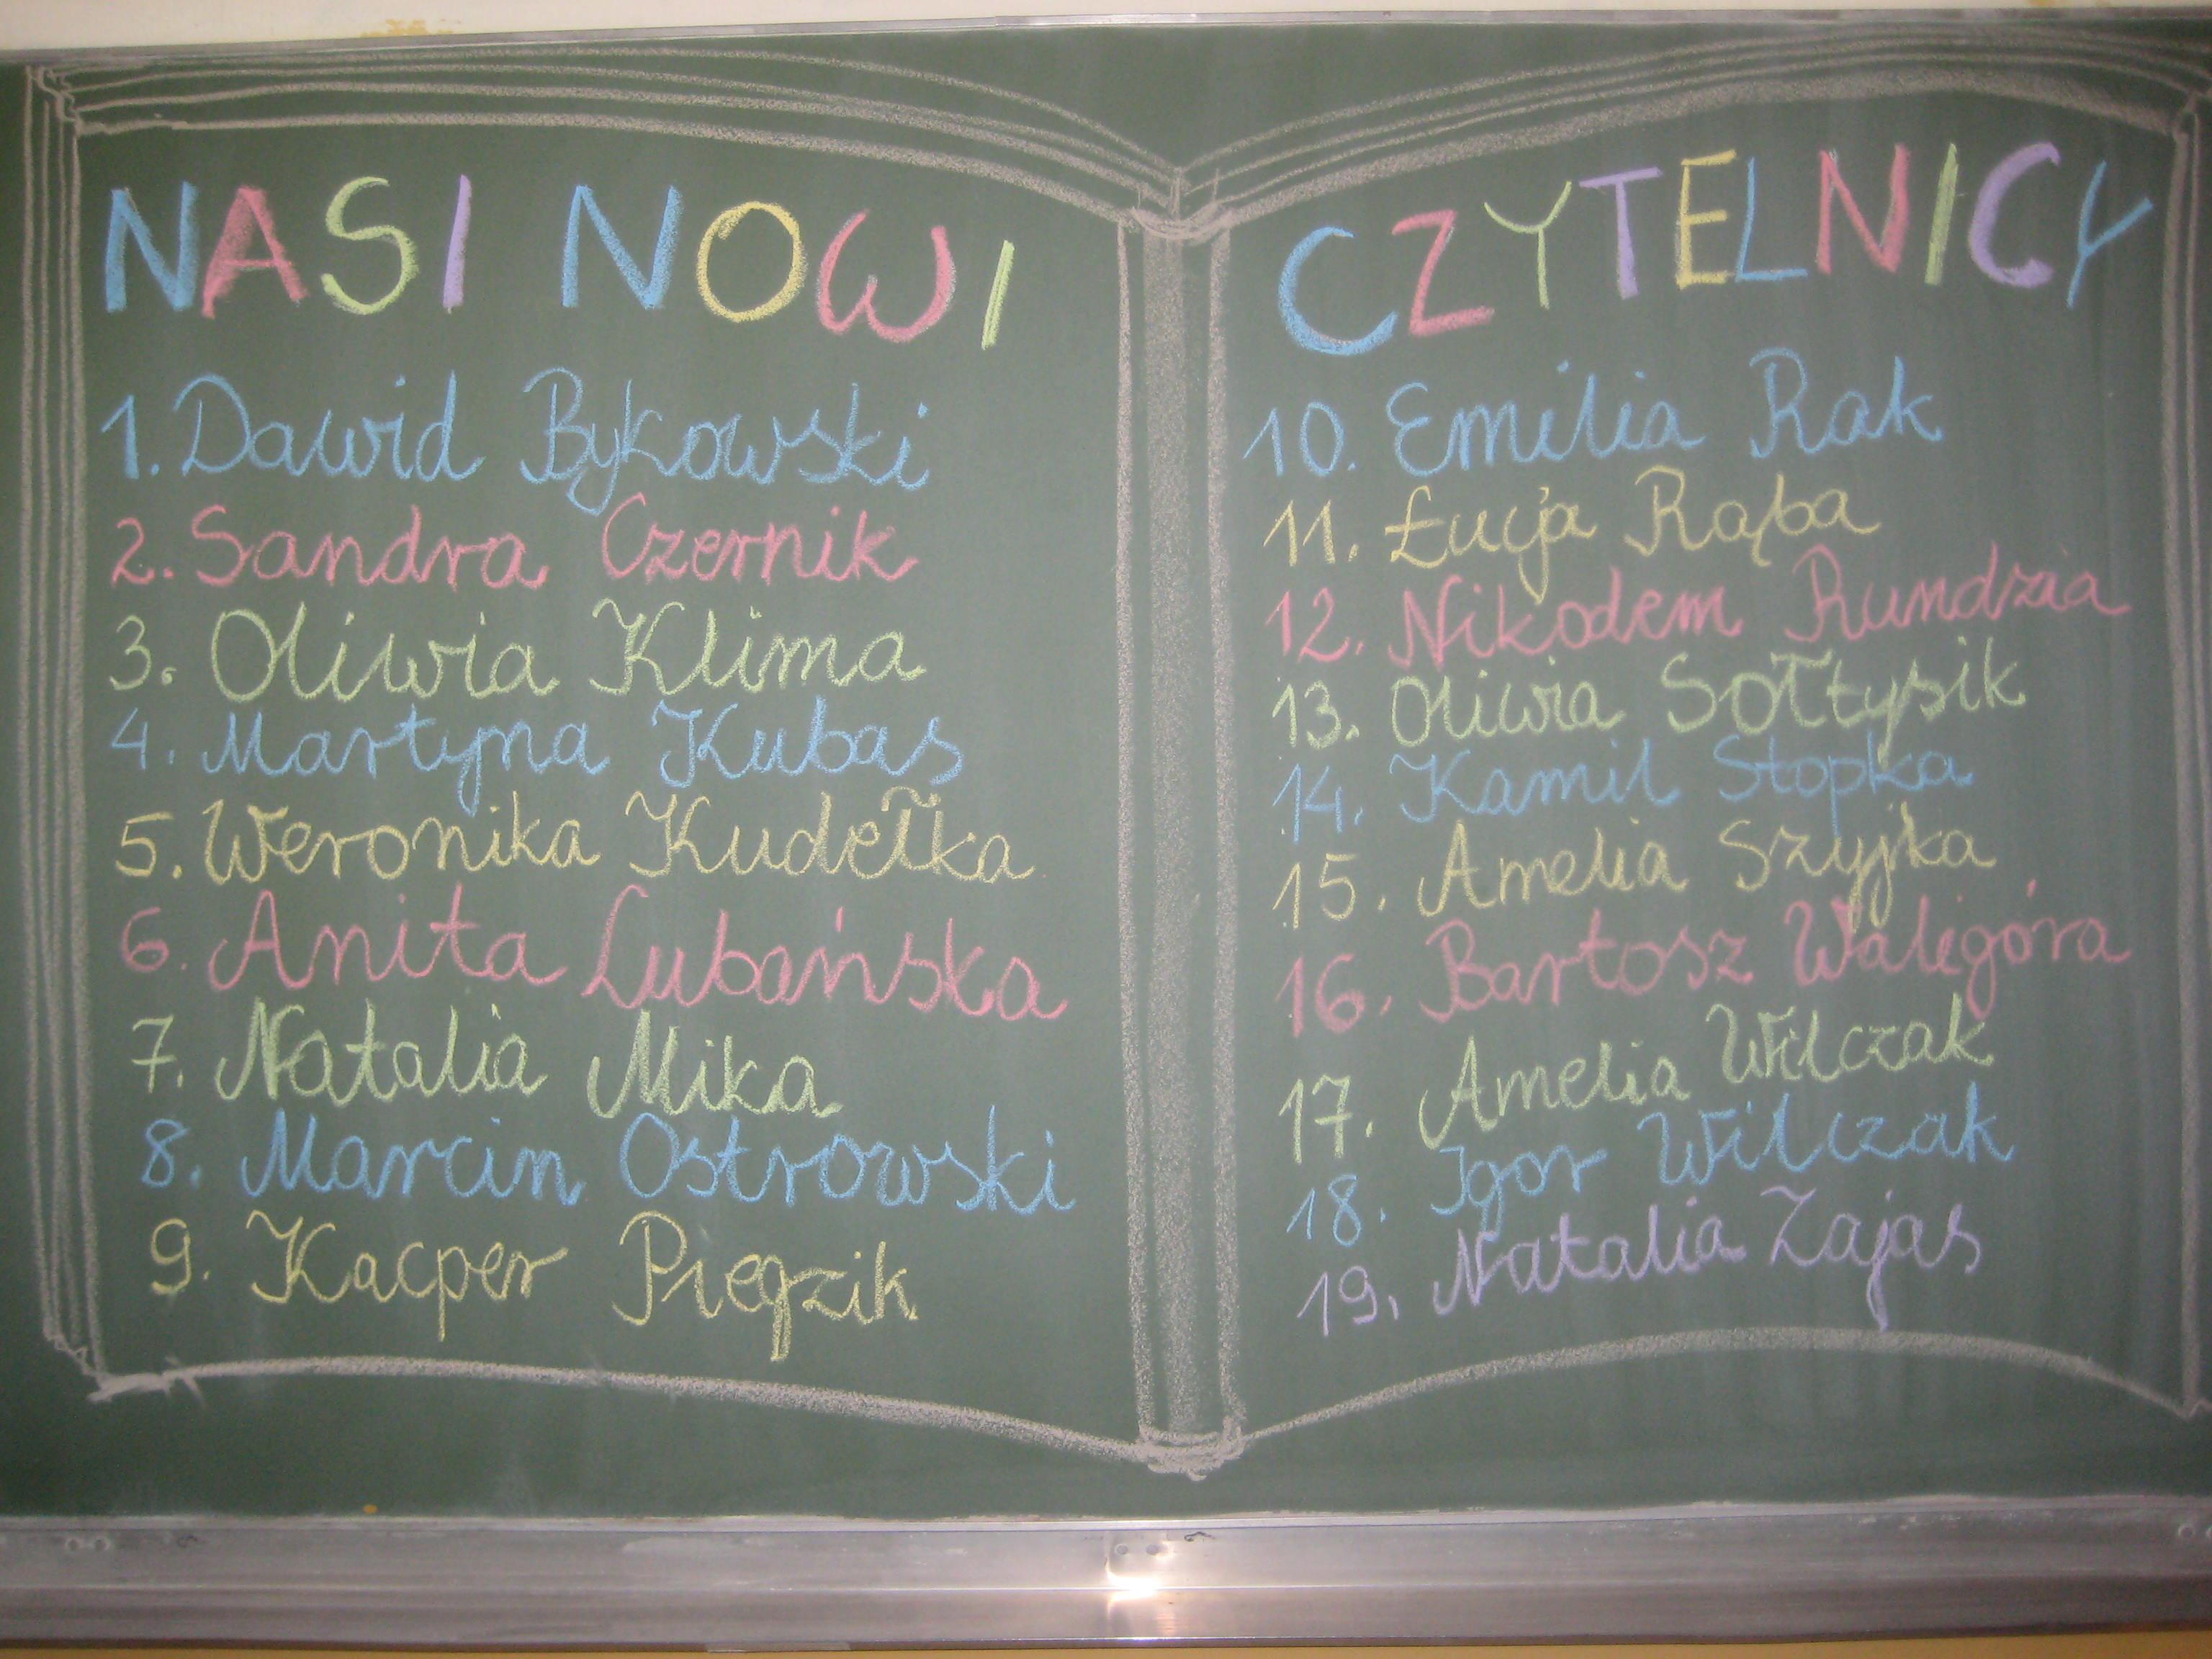 NASI NOWI
1. Dawid Bykowski
2. Sandra Czernik
3. Oliwia Klima
4. Martyna Kubas
5. Weronika Kudełka
6. Anita Lubańska
7. Natalia Mika
8. Marcin Ostrowski
9. Kacper Pięgzik
CZYTELNICY
10. Emilia Rak
11. Łucja Rąba
12. Nikodem Rundzia
13. Oliwia Sołtysik
14. Kamil Stopka
15. Amelia Szyjka
16. Bartosz Waligóra
17. Amelia Wilczak
18. Igor Wilczak
19. Natalia Zając